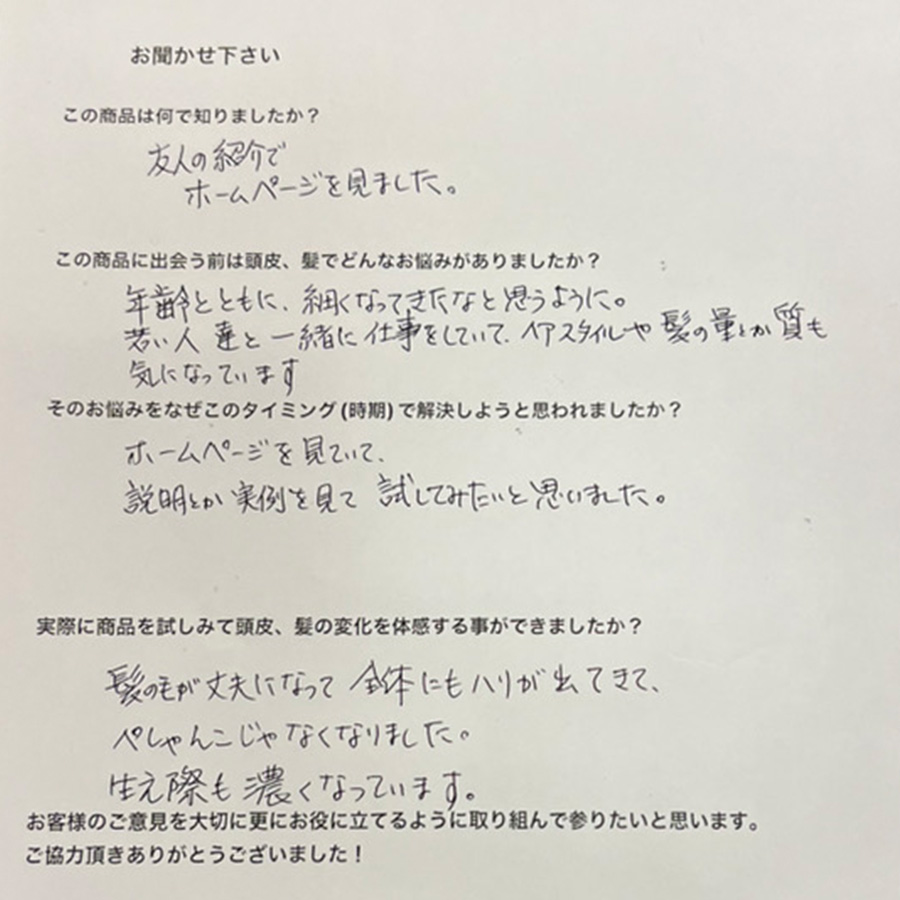 お聞かせ下さい
この商品は何で知りましたか？
友人の紹介で
ホームページを見ました。
この商品に出会う前は頭皮、髪でどんなお悩みがありましたか？
年齢とともに、細くなってきたなと思うように。
若い人達と一緒に仕事をしていて、ヘアスタイルや髪の量とか質も
気になっています
そのお悩みをなぜこのタイミング(時期)で解決しようと思われましたか？
ホームページを見ていて、
説明とか実例を見て試してみたいと思いました。
実際に商品を試しみて頭皮、髪の変化を体感する事ができましたか？
髪の毛が丈夫になって全体にもハリが出てきて、
ぺしゃんこじゃなくなりました。
生え際も濃くなっています。
お客様のご意見を大切に更にお役に立てるように取り組んで参りたいと思います。
ご協力頂きありがとうございました！